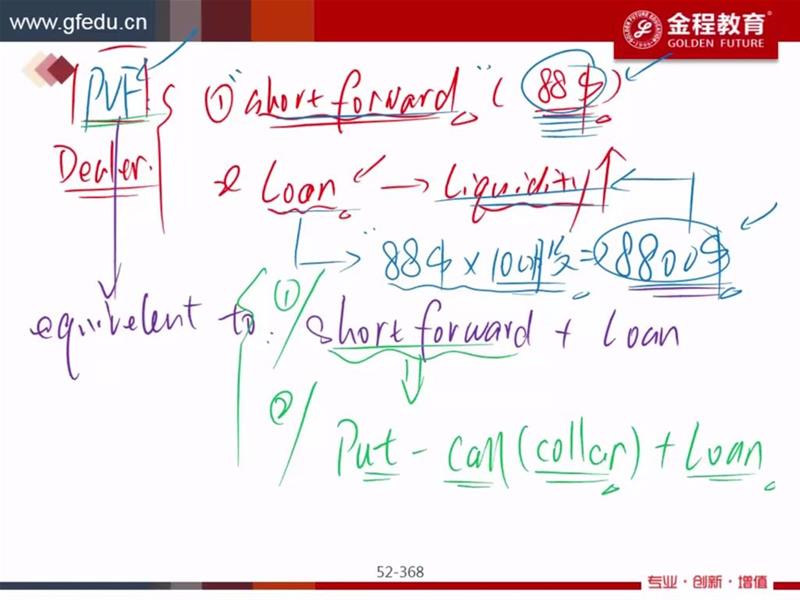 www.gfedu.cn
金程教育
GOLDEN FUTURE
PVF
① "short forward" ( 88$ )
Dealer.
② Loan → Liquidity ↑
"88$ × 100股 = 8800$
equivelent to: ① short forward + Loan
② Put - call (collar) + Loan
52-368
专业·创新·增值